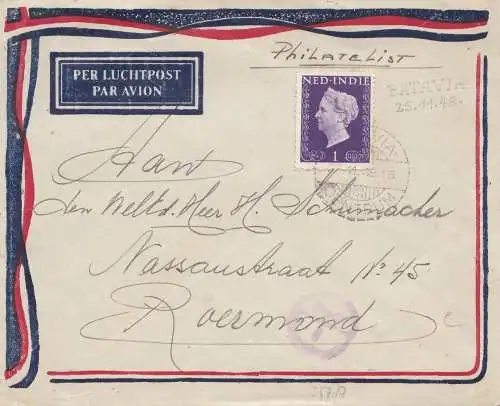 Philatelist
PER LUCHTPOST
PAR AVION
NED-INDIE
1
BATAVIA
25.11.48.
Aan
den Weltd. Heer H. Schumacher
Nassaustraat No 45
Roermond